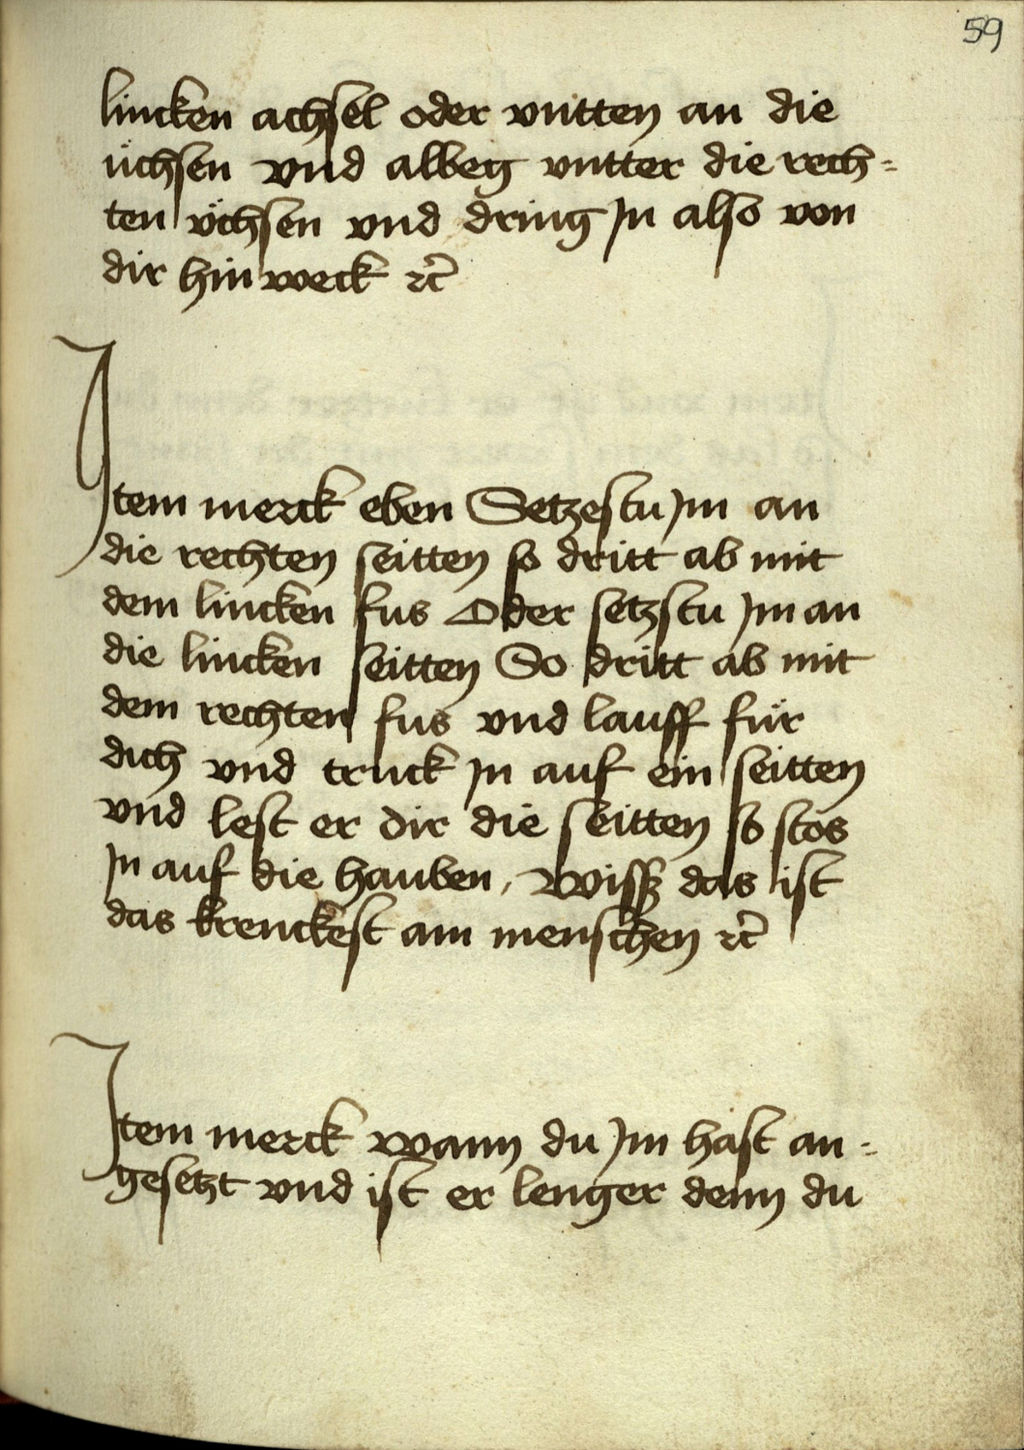 59
lincken achsel oder vntten an die
üchsen vnd albeg vntter die rech=
ten vchsen vnd dring Jn also von
dir hin weck rc̃
Jtem merck eben Setzestu Jm an
die rechten seitten so dritt ab mit
dem lincken fus Oder setzstu Jm an
die lincken seitten So dritt ab mit
dem rechten fus vnd lauff für
dich vnd truck Jn auf ein seitten
vnd lest er dir die seitten so stos
Jn auf die hauben, Wissz das ist
das krenckest am menschen rc̃
Jtem merck wann du Jm hast an=
gesetzt vnd ist er lenger denn du